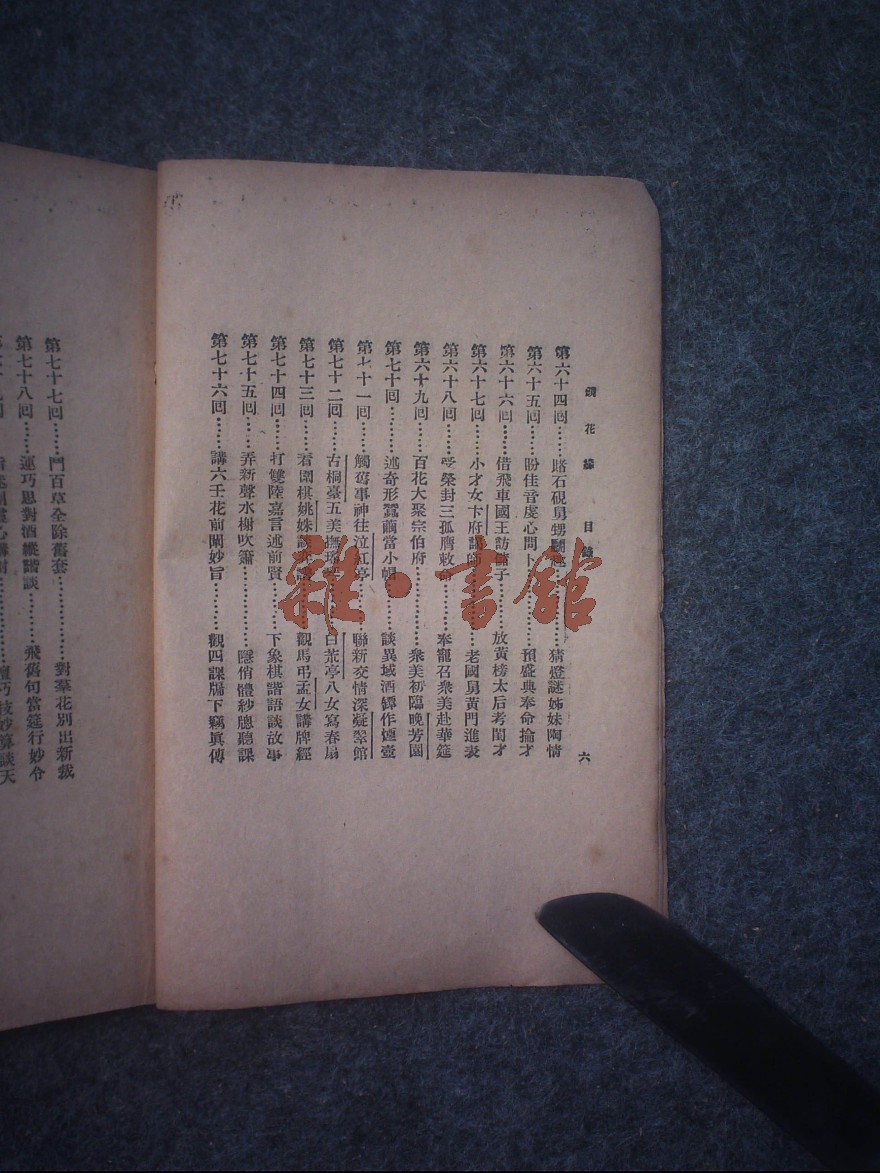 鏡花緣　目錄　六
第六十四回……賭石硯舅甥鬭趣……猜燈謎姊妹陶情
第六十五回……盼佳音虔心問卜……預盛典奉命掄才
第六十六回……借飛車國王訪儲子……放黃榜太后考閨才
第六十七回……小才女卞府謁師……老國舅黃門進表
第六十八回……受榮封三孤膺敕命……奉寵召衆美赴華筵
第六十九回……百花大聚宗伯府……衆美初臨晚芳園
第七十回………述奇形蠶繭當小帽……談異域酒罈作煙壺
第七十一回……觸舊事神往泣紅亭……聯新交情深凝翠館
第七十二回……古桐臺五美撫瑤琴……白荒亭八女寫春扇
第七十三回……看圍棋姚姝談弈譜……觀馬弔孟女講牌經
第七十四回……打雙陸嘉言述前賢……下象棋諧語談故事
第七十五回……弄新聲水榭吹簫……隱俏體紗牕聽課
第七十六回……講六壬花前闡妙旨……觀四課牖下竊眞傳
第七十七回……鬥百草全除舊套……對羣花別出新裁
第七十八回……運巧思對酒縱諧談……飛舊句當筵行妙令
雜·書館